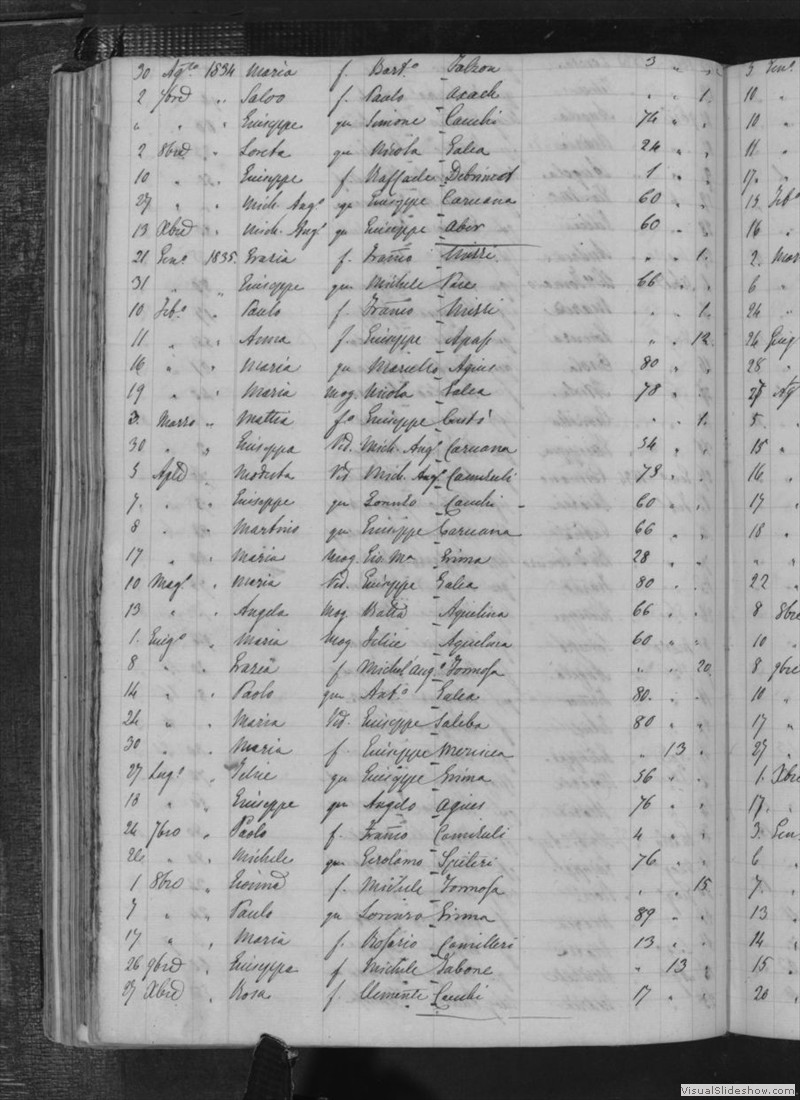 30 Ag.to 1834 Maria f. Bart.o Falzon 3 " "
2 7bre " Salvo f. Paolo Axach " " 1.
" " " Giuseppe qu Simone Camilleri 74 " "
2 8bre " Loreta qu Nicola Galea 24 " "
10 " " Giuseppe f. Raffaele 1 " "
27 " " Mich. Ang.o qu Giuseppe Caruana 60 " "
13 Xbre " Mich. Ang.o qu Giuseppe Abir 60 " "
21 Gen.o 1835. Grazia f. Franco Missi " " 1.
31 " " Giuseppe qu Michele Pace 66 " "
10 Feb.o " Paulo f. Franco Missi " " 1.
11 " " Anna f. Giuseppe Apap " " 12.
16 " " Maria qu Agius 80 " "
19 " " Maria mog. Nicola Galea 78 " "
3. Marzo " Mattia f.o Giuseppe " " 1.
30 " " Giuseppa Vid. Mich. Ang.o Caruana 54 " "
5 Aple " Vid Mich. Ang.o Camilleri 73 " "
7. " " Giuseppe qu Lorenzo 60 " "
8 " " Martino qu Giuseppe Caruana 66 " "
17 " " Maria mog. Gio. Ma Grima 28 " "
10 Mag.o " Maria Vid. Giuseppe Galea 80 " "
13 " " Angela Mog Batta Aquilina 66 " "
1. Giug.o " Maria Mog Felice Aquilina 60 " "
8 " " Grazia f Michel'Ang.o Formosa " " 20.
14 " " Paolo qu Ant.o Galea 80. " "
24 " " Maria Vid. Giuseppe Saliba 80 " "
30 " " Maria f Giuseppe Mercieca " 13 "
27 Lug.o " Felice qu Giuseppe Grima 56 " "
13 " " Giuseppe qu Angelo Agius 76 " "
24 7bro " Paolo f. Franco Camilleri 4 " "
26 " " Michele qu Girolamo Spiteri 76 " "
1 8bro " f. Michele Formosa " " 15
7 " " Paulo qu Lorenzo Grima 89 " "
17 " " Maria f. Rosario Camilleri 13 " "
26 9bre " Giuseppa f Michele Tabone " 13 "
27 Xbre " Rosa f. Clemente 17 " "
3 Gen.o
10 "
10 "
11 "
17. "
13 Feb.o
16 "
2. Mar
6 "
24 "
26 Giug
28 "
27 Ag
5. "
15 "
16. "
17 "
18 "
" "
22 "
8 8bre
10 "
8 9bre
10 "
17 "
27 "
1. Xbre
17. "
3. Gen
6 "
7. "
13 "
14 "
15 "
20 "
VisualSlideshow.com